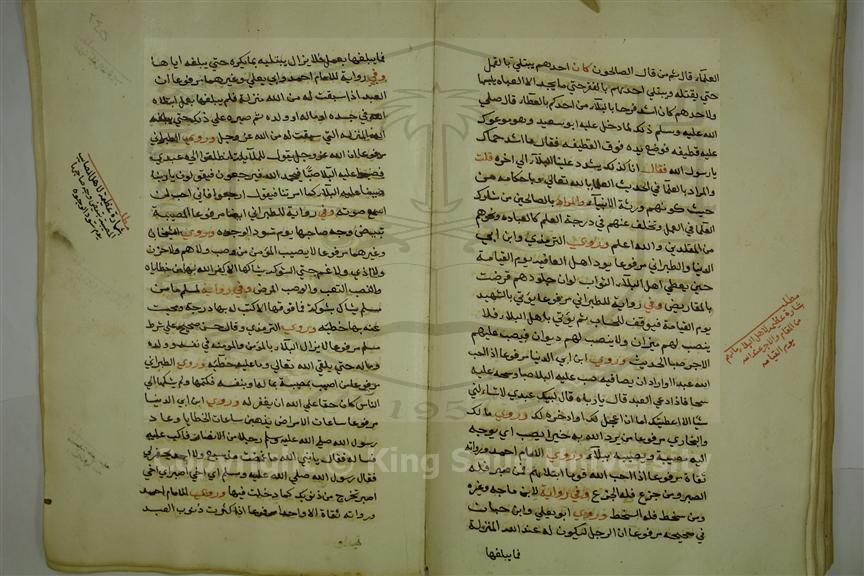 العلماء قال ثم من قال الصالحون كان احدهم يبتلى بالقمل
حتى يقتله ويبتلى احدهم بالفقر حتى ما يجد الا العباة يلبسها
ولاحدهم كان اشد فرحا بالبلاء من احدكم بالعطاء قال صلى
الله عليه وسلم ذلك لما دخل عليه ابو سعيد وهو موعوك
عليه قطيفه فوضع يده فوق القطيفه فقال ما اشد حماك
يا رسول الله فقال انا كذلك يشدد علينا البلاء الى اخره قلت
والمراد بالعلماء في الحديث العلماء بالله تعالى وباحكامه من
حيث كونهم ورثة الانبياء والمراد بالصالحين من شارك
العلماء في العمل وتخلف عنهم في درجة العلم كالعباد ونحوهم
من المقلدين والله اعلم وروى الترمذي وابن ابي
الدنيا والطبراني مرفوعا يود اهل العافيه يوم القيامة
حين يعطى اهل البلاء الثواب لو ان جلودهم قرضت
بالمقاريض وفي رواية للطبراني مرفوعا يؤتى بالشهيد
يوم القيامة فيوقف للحساب ثم يؤتى باهل البلاء فلا
ينصب لهم ميزان ولا ينصب لهم ديوان فيصب عليهم
الاجر صبا الحديث وروى ابن ابي الدنيا مرفوعا اذا احب
الله عبدا او اراد ان يصافيه صب عليه البلاء صبا وسحه عليه
سحا فاذا دعى العبد قال يا رباه قال لبيك عبدي لا تسالني
شيئا الا اعطيتك اما ان اعجل لك او ادخره لك وروى مالك
والبخاري مرفوعا من يرد الله به خيرا يصب اي يوجه
اليه مصيبة ويصيبه ببلاء وروى الامام احمد ورواته
ثقاة مرفوعا اذا احب الله قوما ابتلاهم فمن صبر فله
الصبر ومن جزع فله الجزع وفي رواية لابن ماجه وغيره
ومن سخط فله السخط وروى ابو يعلى وابن حبان
في صحيحه مرفوعا ان الرجل ليكون له عند الله المنزلة
فما يبلغها
مطلب
يوم القيامه
فما يبلغها بعمل فلا يزال يبتليه بما يكره حتى يبلغه اياها
وفي رواية للامام احمد وابي يعلى وغيرهما مرفوعا ان
العبد اذا سبقت له من الله منزلة فلم يبلغها بعمل ابتلاه
الله في جسده او ماله او ولده ثم صبره على ذلك حتى يبلغه
المنزلة التي سبقت له من الله عز وجل وروى الطبراني
مرفوعا ان الله عز وجل يقول للملائكة انطلقوا الى عبدي
فصبوا عليه البلاء صبا فيحمد الله فيرجعون فيقولون يا ربنا
صببنا عليه البلاء كما امرتنا فيقول ارجعوا فاني احب ان
اسمع صوته وفي رواية للطبراني ايضا مرفوعا المصيبة
تبيض وجه صاحبها يوم تسود الوجوه وروى الشيخان
وغيرهما مرفوعا لا يصيب المؤمن من وصب ولا هم ولا حزن
ولا اذى ولا غم حتى الشوكة يشاكها الا كفر الله بها من خطاياه
والنصب التعب والوصب المرض وفي رواية لمسلم ما من
مسلم يشاك بشوكة فما فوقها الا كتب له بها درجة ومحيت
عنه بها خطيئه وروى الترمذي وقال حسن صحيح على شرط
مسلم مرفوعا لا يزال البلاء بالمؤمن والمؤمنه في نفسه وولده
وماله حتى يلقى الله تعالى وما عليه خطيئه وروى الطبراني
مرفوعا من اصيب بمصيبة بماله او بنفسه فكتمها ولم يشكها الى
الناس كان حقا على الله ان يغفر له وروى ابن ابي الدنيا
مرفوعا ساعات الامراض يذهبن ساعات الخطايا وعاد
رسول الله صلى الله عليه وسلم رجلا من الانصار فاكب عليه
فساله فقال يا نبي الله ما غمضت منذ سبع ولا احد يحضرني
فقال رسول الله صلى الله عليه وسلم اي اخي اصبر اي اخي
اصبر تخرج من ذنوبك كما دخلت فيها وروى الامام احمد
ورواته ثقاة الا واحدا مرفوعا اذا كثرت ذنوب العبد
مطلب
يوم تسود الوجوه